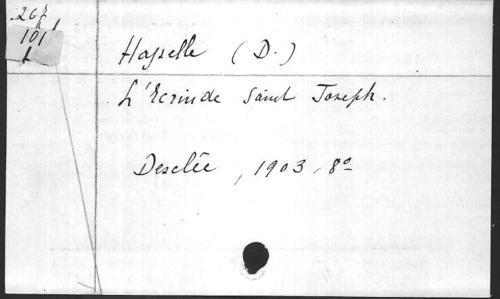 267
101
L
Hasselle (D.)
L'Ecrin de Saint Joseph.
Desclée, 1903, 8º